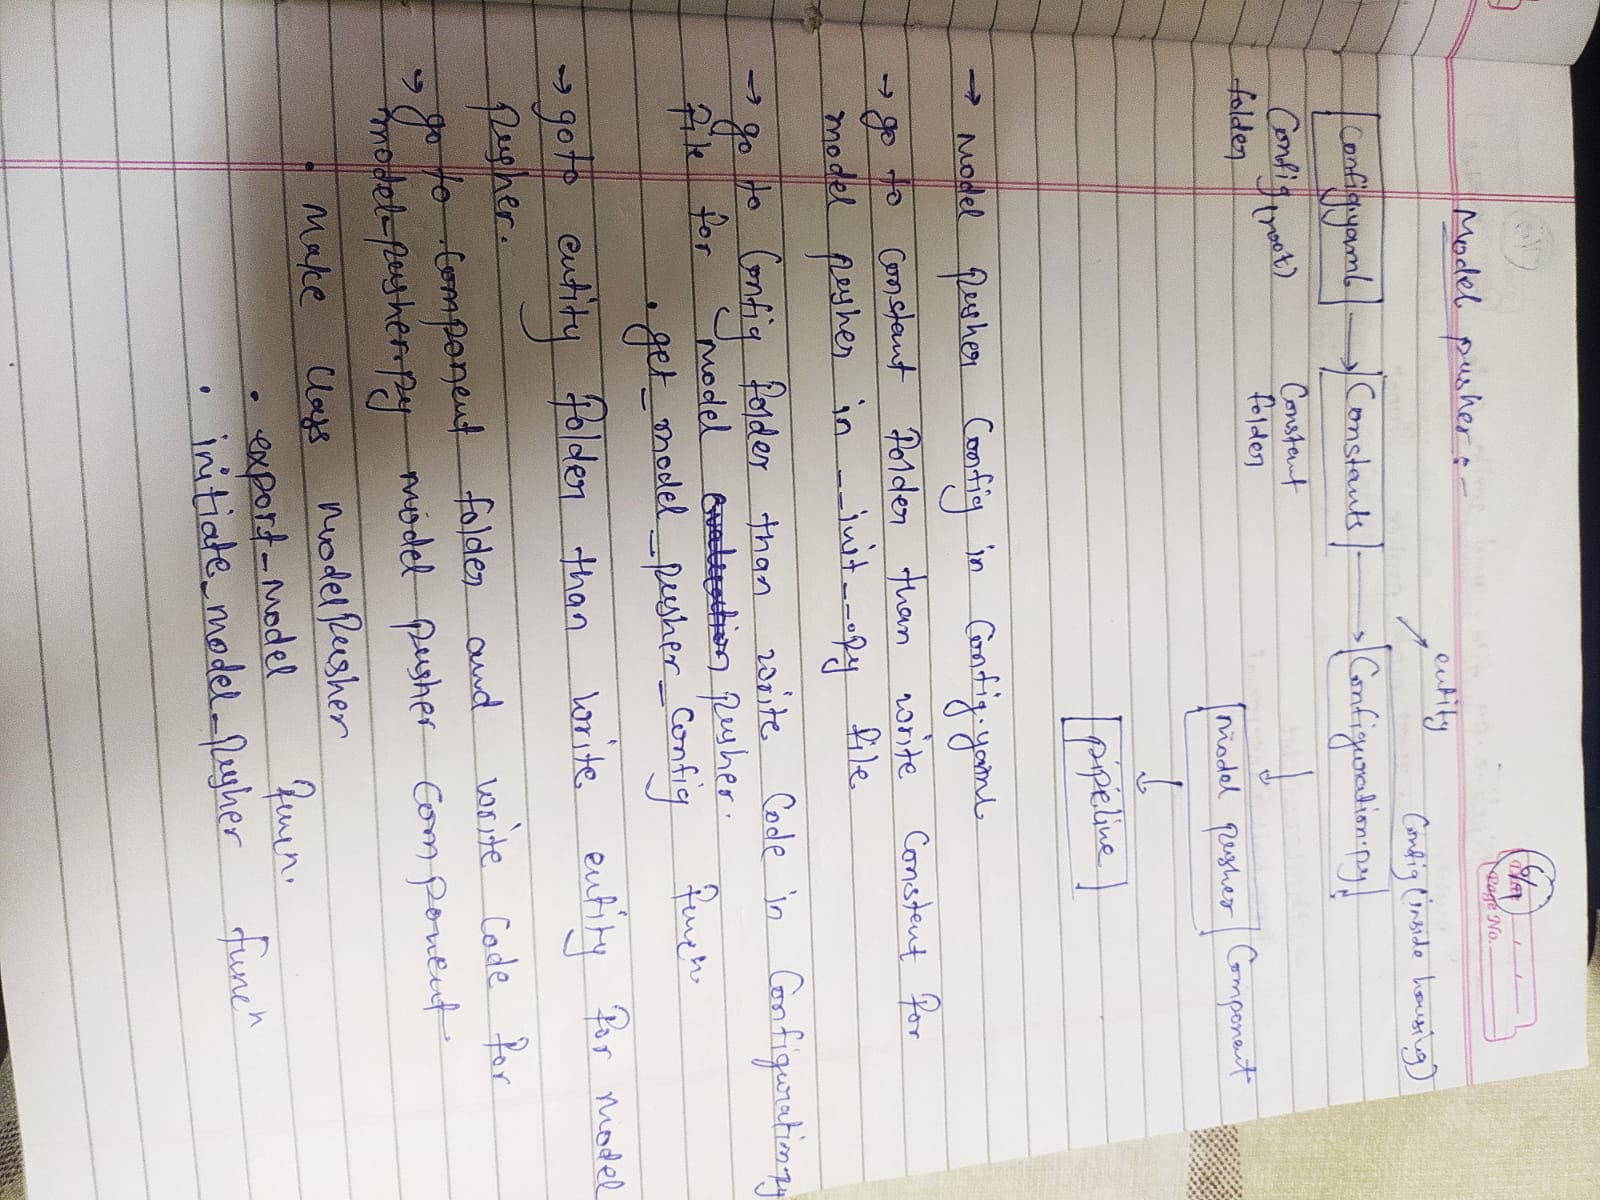 6/9
Date
Page No.
Model pusher :-
entity
Config (inside housing)
Config.yaml
Constants
Configuration.py
Config (root)
folder
Constant
folder
Model pusher
Component
pipeline
→ Model pusher Config in Config.yaml
→ go to constant folder than write Constent for
model pusher in __init__.py file
→ go to Config folder than write Code in Configuration.py
file for model evaluation pusher.
• get_model_pusher_Config funcn
→ goto entity folder than write entity for Model
pusher.
→ go to Component folder and write Code for
model-pusher.py model pusher Component
• Make Class ModelPusher
• export-Model funcn.
• initiate_model_Pusher funcn